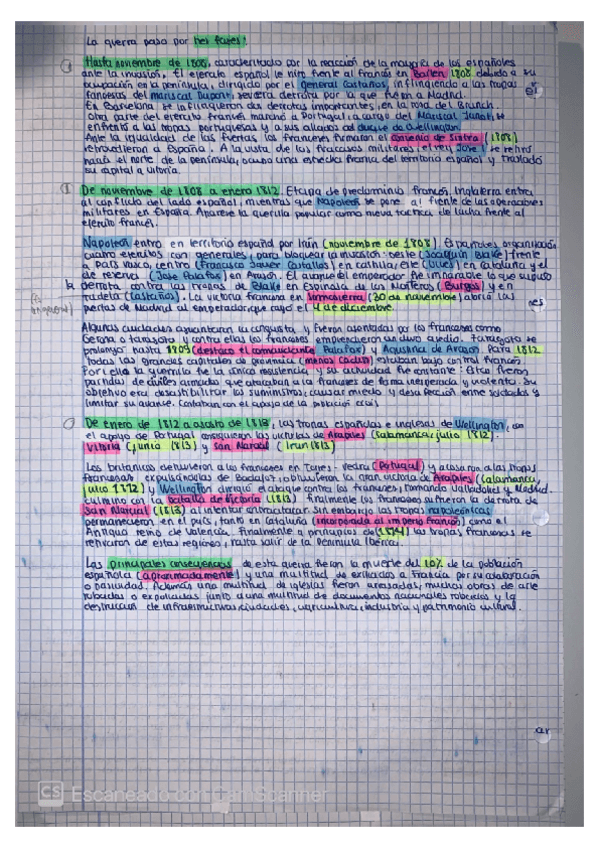 La guerra paso por tres fases:
Hasta noviembre de 1808, caracterizada por la reacción de la mayoría de los españoles
ante la invasión. El ejercito español le hizo frente al francés en Bailén 1808 debido a su
ocupación en la península, dirigido por el general Castaños, infligiendo a las tropas
francesas del mariscal Dupont, severa derrota por lo que fueron a Madrid.
En Barcelona se infligieron dos derrotas importantes, en la zona del Bruch.
Otra parte del ejercito francés marchó a Portugal, a cargo del Mariscal Junot, se
enfrentó a las tropas portuguesas y a sus aliados del duque de Wellington.
Ante la igualdad de las fuerzas, los franceses firmaron el convenio de Sintra (1808)
retrocedieron a España. A la vista de los fracasos militares, el rey José I se retiró
hacia el norte de la península, ocupó una estrecha franja del territorio español y trasladó
su capital a Vitoria.
De noviembre de 1808 a enero 1812. Etapa de predominio francés. Inglaterra entra
al conflicto del lado español, mientras que Napoleón se pone al frente de las operaciones
militares en España. Aparece la guerrilla popular como nueva tactica de lucha frente al
ejercito francés.
Napoleón entró en territorio español por Irún (noviembre de 1808). Españoles organizaron
cuatro ejercitos con generales, para bloquear la invasión: oeste (Joaquín Blake) frente
a País Vasco, centro (Francisco Javier Castaños) en castilla, este (Vives) en Cataluña y el
de reserva (José Palafox) en Aragón. El avance del emperador fue imparable lo que supuso
la derrota contra las tropas de Blake en Espinosa de los Monteros (Burgos) y en
Tudela (Castaños). La victoria francesa en Somosierra (30 de noviembre) abrió las
puertas de Madrid al emperador, que cayó el 4 de diciembre.
Algunas ciudades aguantaron la conquista y fueron asentadas por los franceses como
Gerona o Zaragoza y contra ellas los franceses emprendieron un duro asedio. Zaragoza se
prolongó hasta 1809 (destaca el comandante Palafox) y Agustina de Aragón. Para 1812
todas las grandes capitales de provincia (menos Cádiz) estaban bajo control francés.
Por ello la guerrilla fue la única resistencia y su actividad fue constante. Estas fueron
partidas de civiles armados que atacaban a los franceses de forma inesperada y violenta. Su
objetivo era desestabilizar los suministros, causar miedo y desafección entre soldados y
limitar su avance. Contaban con el apoyo de la población civil
De enero de 1812 a agosto de 1813, las tropas españolas e inglesas de Wellington, con
el apoyo de Portugal consiguieron las victorias de Arapiles (Salamanca, julio 1812),
Vitoria (junio 1813) y San Marcial (Irun 1813)
Los britanicos detuvieron a los franceses en Torres-Vedras (Portugal) y atacaron a las tropas
francesas expulsándolas de Badajoz, obtuvieron la gran victoria de Arapiles (Salamanca,
julio 1812) y Wellington dirigió el ataque contra los franceses, tomando Valladolid y Madrid.
culminó con la batalla de Victoria (1813) finalmente los franceses sufrieron la derrota de
San Marcial (1813) al intentar contraatacar. Sin embargo las tropas napoleónicas
permanecieron en el país, tanto en Cataluña (incorporada al imperio francés) como el
Antiguo reino de Valencia. Finalmente a principios de (1814) las tropas francesas se
retiraron de estas regiones, hasta salir de la Península Ibérica.
Las principales consecuencias de esta guerra fueron la muerte del 10% de la población
española (aproximadamente) y una multitud de exiliados a Francia por su colaboración
o pasividad. Además una multitud de iglesias fueron arrasadas, muchas obras de arte
robadas o expoliadas junto a una multitud de documentos nacionales robados y la
destrucción de infraestructuras, ciudades, agricultura, industria y patrimonio cultural.
CS Escaneado con CamScanner